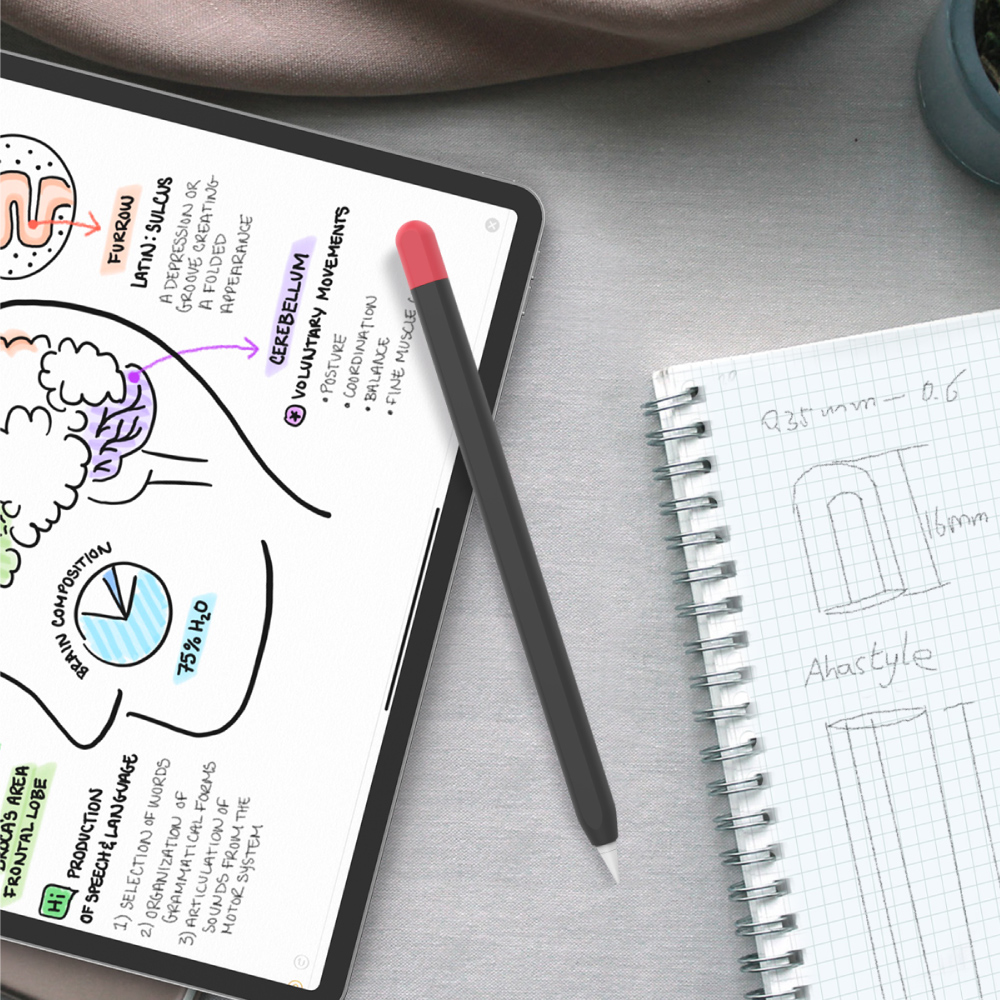 FURROW
LATIN: SULCUS
A DEPRESSION OR
GROOVE CREATING
A FOLDED
APPEARANCE
CEREBELLUM
VOLUNTARY MOVEMENTS
• POSTURE
• COORDINATION
• BALANCE
• FINE MUSCLE
BRAIN COMPOSITION
75% H2O
BROCA'S AREA
FRONTAL LOBE
Hi
PRODUCTION
OF SPEECH & LANGUAGE
1) SELECTION OF WORDS
2) ORGANIZATION OF
GRAMMATICAL FORMS
3) ARTICULATION OF
SOUNDS FROM THE
MOTOR SYSTEM
0,35 mm — 0.6
16mm
Ahastyle